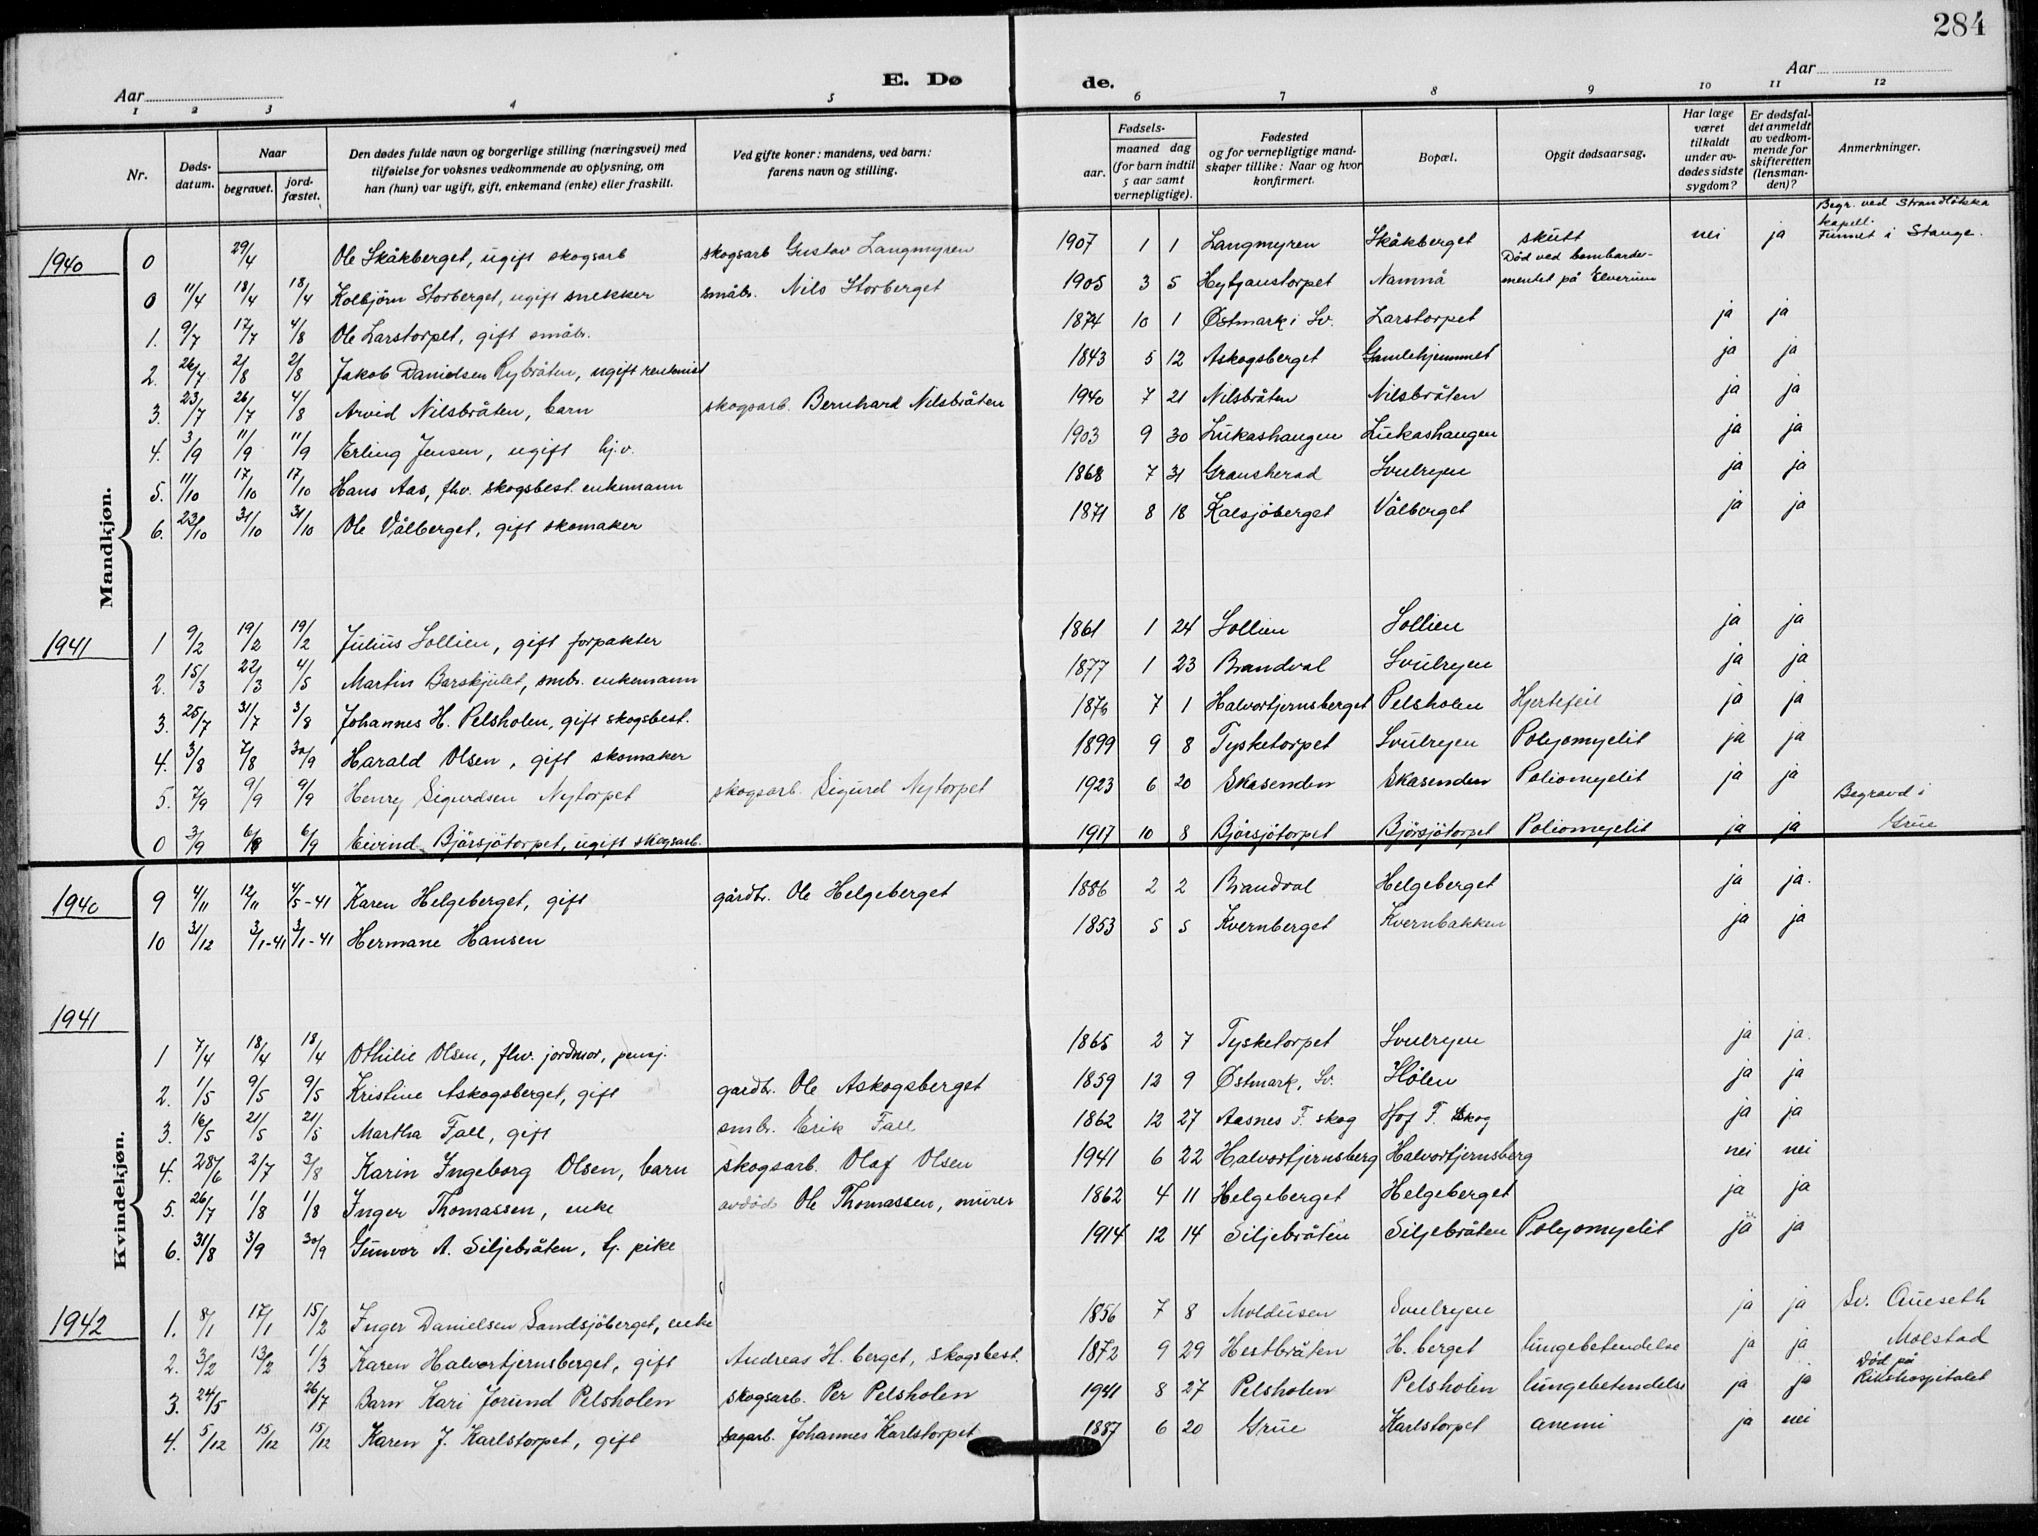 284
E. Dø de.
Aar Aar
1 2 3 4 5 6 7 8 9 10 11 12
Nr. Døds-datum. Naar begravet. jord-fæstet. Den dødes fulde navn og borgerlige stilling (næringsvei) med tilføielse for voksnes vedkommende av oplysning, om han (hun) var ugift, gift, enkemand (enke) eller fraskilt. Ved gifte koner: mandens, ved barn: farens navn og stilling. Fødsels- aar. maaned dag (for barn indtil 5 aar samt vernepligtige). Fødested og for vernepligtige mand-skaper tillike: Naar og hvor konfirmert. Bopæl. Opgit dødsaarsag. Har læge været tilkaldt under av-dødes sidste sygdom? Er dødsfal-det anmeldt av vedkom-mende for skifteretten (lensman-den)? Anmerkninger.
Mandkjøn.
1940 0 29/4 Ole Skåkberget, ugift skogsarb skogsarb Gustav Langmyren 1907 1 1 Langmyren Skåkberget skutt nei ja Begr. ved Strandlökka kapell. Funnet i Stange.
0 11/4 18/4 18/4 Kolbjörn Storberget, ugift snekker småbr. Nils Storberget 1905 3 5 Hytjanstorpet Namnå Död ved bombarde-mentet på Elverum
1. 9/7 17/7 4/8 Ole Larstorpet, gift småbr. 1874 10 1 Østmark i Sv. Larstorpet ja ja
2. 26/7 2/8 2/8 Jakob Danielsen Rybråten, ugift rentenist 1843 5 12 Askogsberget Gamlehjemmet ja ja
3. 23/7 26/7 4/8 Arvid Nilsbråten, barn skogsarb. Bernhard Nilsbråten 1940 7 21 Nilsbråten Nilsbråten ja ja
4. 3/9 11/9 11/9 Erling Jensen, ugift hj.v. 1903 9 30 Lukashaugen Lukashaugen ja ja
5. 11/10 17/10 17/10 Hans Aas, fhv. skogsbest. enkemann 1868 7 31 Gransherad Svulryen ja ja
6. 23/10 31/10 31/10 Ole Vålberget, gift skomaker 1871 8 18 Kalsjöberget Vålberget ja ja
1941 1 9/2 19/2 19/2 Julius Sollien, gift forpakter 1861 1 24 Sollien Sollien ja ja
2. 15/3 22/3 4/5 Martin Barskjulet, smbr. enkemann 1877 1 23 Brandval Svulryen ja ja
3. 25/7 31/7 3/8 Johannes H. Pelsholen, gift skogsbest. 1876 7 1 Halvortjernsberget Pelsholen Hjertefeil ja ja
4. 3/8 7/8 30/9 Harald Olsen, gift skomaker 1899 9 8 Tysketorpet Svulryen Polyomyelit ja ja
5. 7/9 9/9 9/9 Henry Sigurdsen Nytorpet skogsarb. Sigurd Nytorpet 1923 6 20 Skasenden Skasenden Poliomyelit ja ja
0 3/9 6/9 6/9 Eivind Bjørsjötorpet, ugift skogsarb. 1917 10 8 Bjørsjötorpet Bjørsjötorpet Poliomyelit ja ja Begravd i Grue
Kvindekjøn.
1940 9 4/11 12/11 4/5-41 Karen Helgeberget, gift gårdbr. Ole Helgeberget 1886 2 2 Brandval Helgeberget ja ja.
10 31/12 3/1-41 3/1-41 Hermane Hansen 1853 5 5 Kvernberget Kvernbakken ja ja
1941
1 7/4 18/4 18/4 Othilie Olsen, fhv. jordmor, pensj. 1865 2 7 Tysketorpet Svulryen ja ja.
2. 1/5 9/5 9/5 Kristine Askogsberget, gift gardbr. Ole Askogsberget 1859 12 9 Østmark, Sv. Hölen ja ja
3. 16/5 21/5 21/5 Martha Fall, gift smbr. Erik Fall 1862 12 27 Aasnes F. skog Hof F. Skog ja ja
4. 28/6 2/7 3/8 Karin Ingeborg Olsen, barn skogsarb. Olaf Olsen 1941 6 22 Halvortjernsberg Halvortjernsberg nei nei
5. 26/7 1/8 1/8 Inger Thomassen, enke avdöde Ole Thomassen, murer 1862 4 11 Helgeberget Helgeberget ja ja
6. 31/8 3/9 30/9 Gunvor A. Siljebråten, hj. pike 1914 12 14 Siljebråten Siljebråten Polyomyelit ja ja
1942 1. 8/1 17/1 15/2 Inger Danielsen Sandsjöberget, enke 1856 7 8 Moldusen Svulryen ja ja Sv. Aueseth
2. 3/2 13/2 1/3 Karen Halvortjernsberget, gift Andreas H. berget, skogsbest. 1872 9 29 Hestbråten H. berget lungebetendelse ja ja Molstad
3. 24/5 26/7 Barn Kari Jorund Pelsholen skogsarb. Per Pelsholen 1941 8 27 Pelsholen Pelsholen lungebetendelse ja ja Död på Rikshospitalet
4. 5/12 15/12 15/12 Karen J. Karlstorpet, gift sagarb. Johannes Karlstorpet 1887 6 20 Grue Karlstorpet anemi ja nei